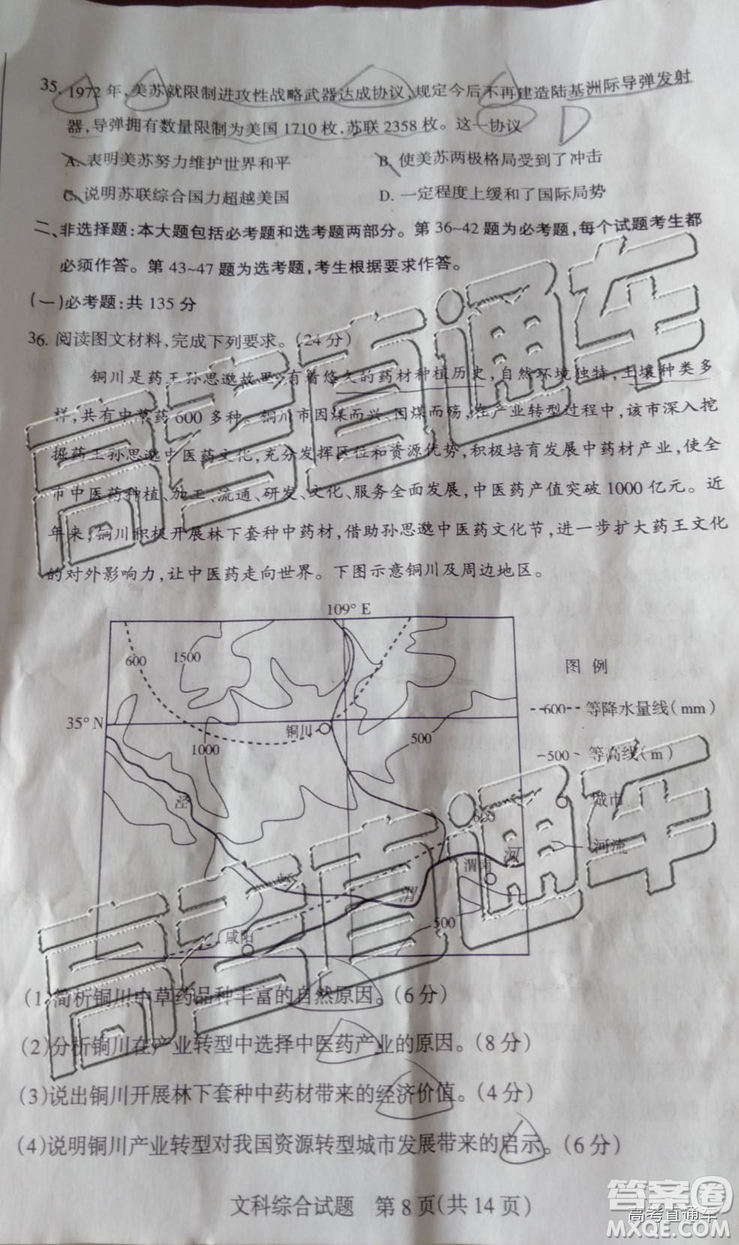 35. 1972 年,美苏就限制进攻性战略武器达成协议,规定今后不再建造陆基洲际导弹发射
器,导弹拥有数量限制为美国 1710 枚,苏联 2358 枚。这一协议
A. 表明美苏努力维护世界和平 B. 使美苏两极格局受到了冲击
C. 说明苏联综合国力超越美国 D. 一定程度上缓和了国际局势
二、非选择题:本大题包括必考题和选考题两部分。第 36~42 题为必考题,每个试题考生都
必须作答。第 43~47 题为选考题,考生根据要求作答。
(一)必考题:共 135 分
36. 阅读图文材料,完成下列要求。(24 分)
铜川是药王孙思邈故里,有着悠久的药材种植历史,自然环境独特,土壤种类多
样,共有中草药 600 多种。铜川市因煤而兴、因煤而殇,在产业转型过程中,该市深入挖
掘药王孙思邈中医药文化,充分发挥区位和资源优势,积极培育发展中药材产业,使全
市中医药种植、加工、流通、研发、文化、服务全面发展,中医药产值突破 1000 亿元。近
年来,铜川积极开展林下套种中药材,借助孙思邈中医药文化节,进一步扩大药王文化
的对外影响力,让中医药走向世界。下图示意铜川及周边地区。
109° E
600 1500
图 例
35° N
铜川
1000
500
--600-- 等降水量线(mm)
-500- 等高线(m)
泾
城市
河流
625
渭南
河
渭
咸阳
500
(1)简析铜川中草药品种丰富的自然原因。(6 分)
(2)分析铜川在产业转型中选择中医药产业的原因。(8 分)
(3)说出铜川开展林下套种中药材带来的经济价值。(4 分)
(4)说明铜川产业转型对我国资源转型城市发展带来的启示。(6 分)
文科综合试题 第 8 页(共 14 页)
高考直通车
高考直通车
D
答案圈
高考直通车
MXQE.COM